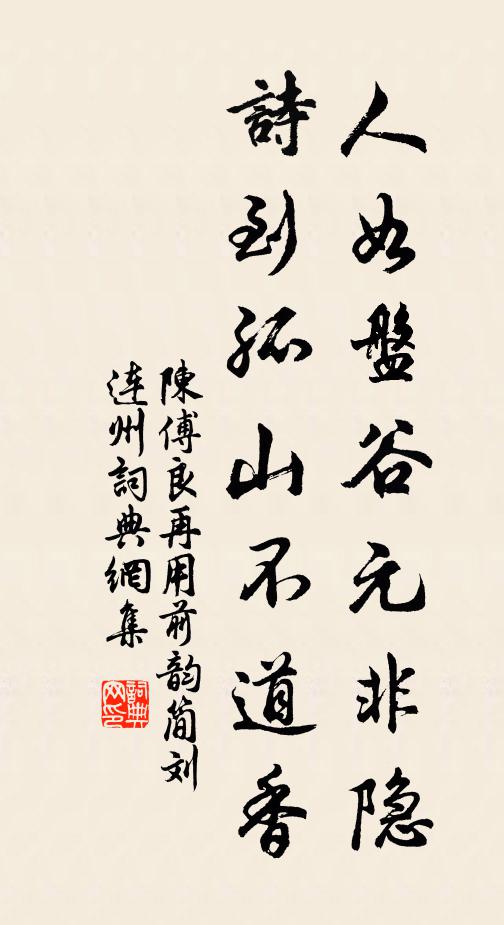 人如盤谷元非隐
詩到孤山不道香
陳傅良再用前韵简刘
连州詞典網集
詞典网印